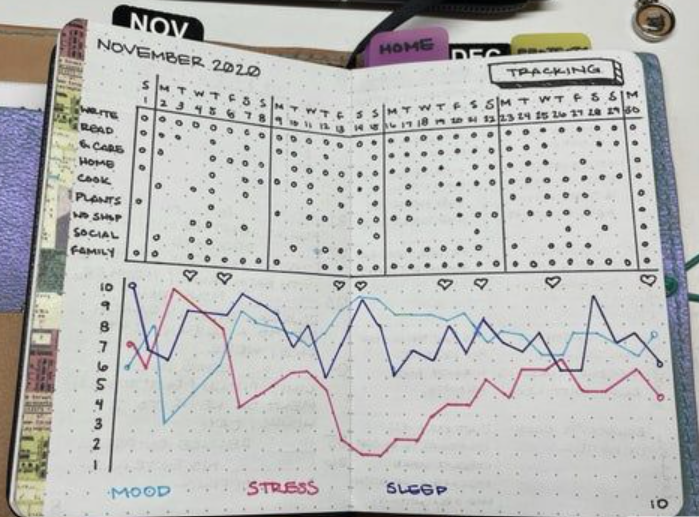 NOV
HOME
DEC
NOVEMBER 2020
TRACKING
S M T W T F S S M T W T F S S M T W T F S S M T W T F S S M
1 2 3 4 5 6 7 8 9 10 11 12 13 14 15 16 17 18 19 20 21 22 23 24 25 26 27 28 29 30
WRITE
READ
& CARE
HOME
COOK
PLANTS
NO SHOP
SOCIAL
FAMILY
10
9
8
7
6
5
4
3
2
1
MOOD STRESS SLEEP
10